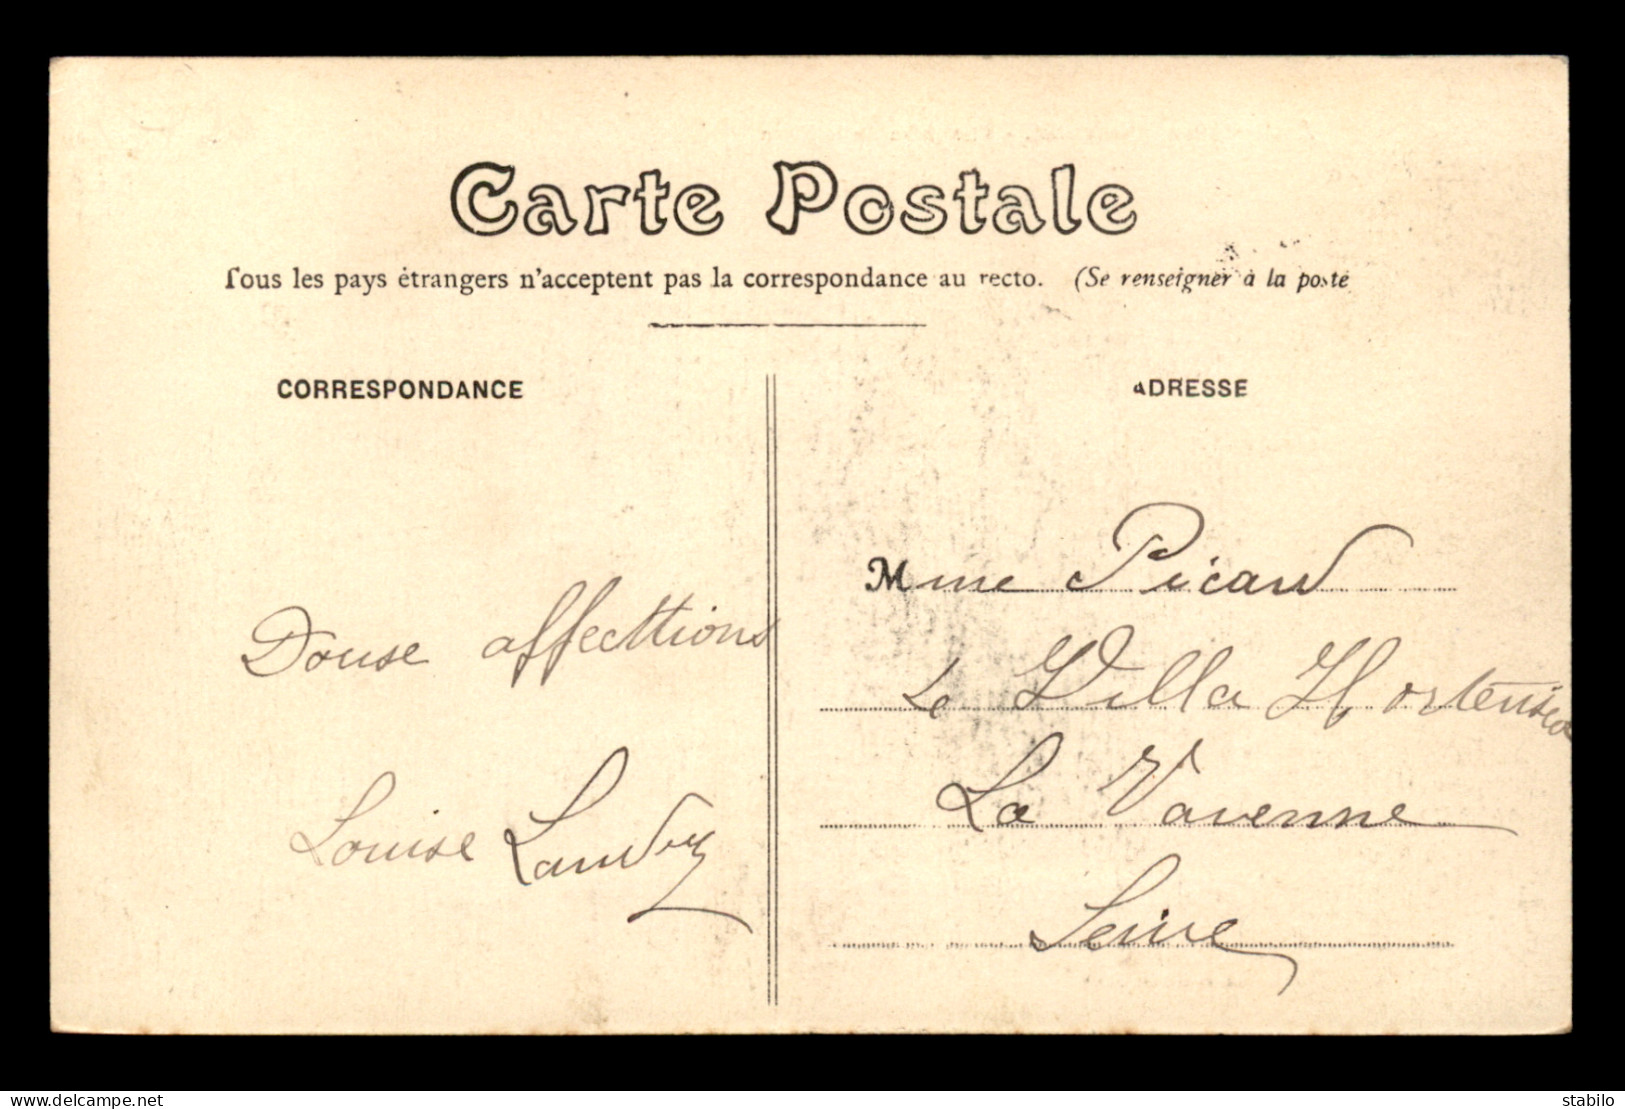 Carte Postale
Tous les pays étrangers n'acceptent pas la correspondance au recto. (Se renseigner à la poste
CORRESPONDANCE
ADRESSE
Douse affecttions
Louise Landry
Mme Picard
Villa Hortensia
La Varenne
Seine
delcampe.net
stabilo